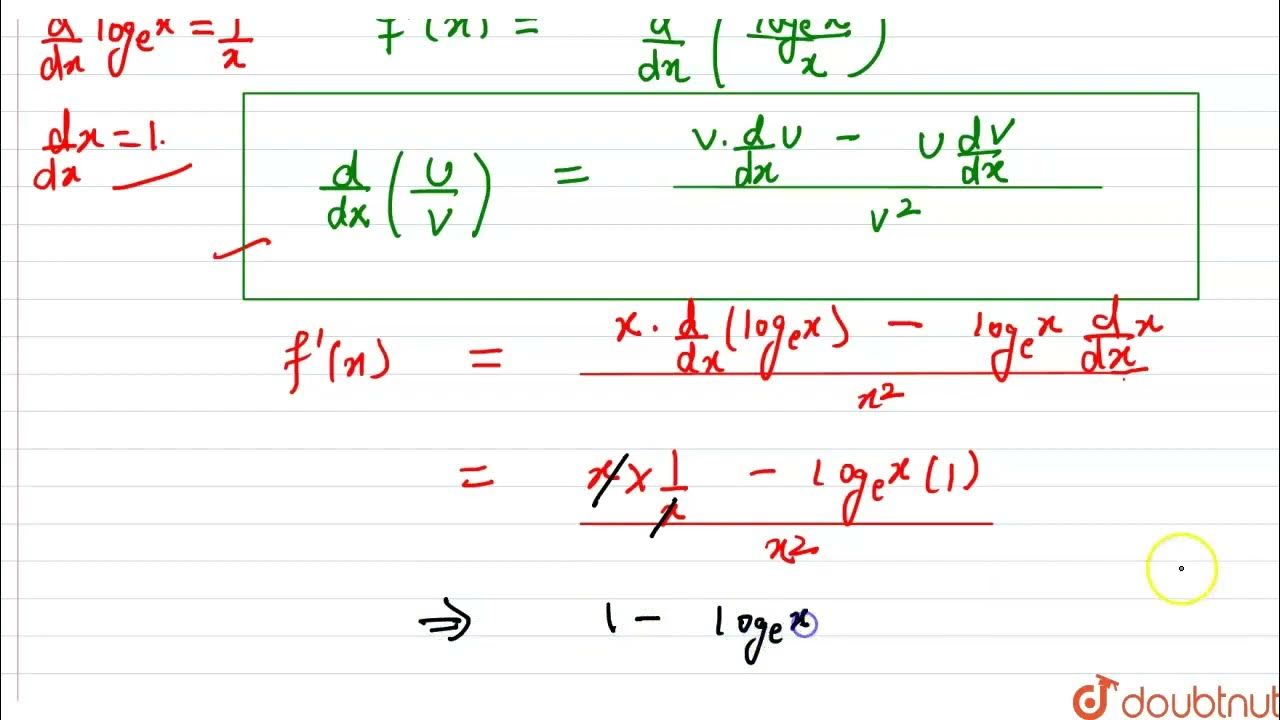 d/dx logₑx = 1/x
f'(x) = d/dx (logₑx / x)
dx/dx = 1.
d/dx (U/V) = (V · d/dx U − U dV/dx) / V²
f'(x) = (x · d/dx (logₑx) − logₑx d/dx x) / x²
= (x × 1/x − logₑx (1)) / x²
⇒ 1 − logₑx
doubtnut